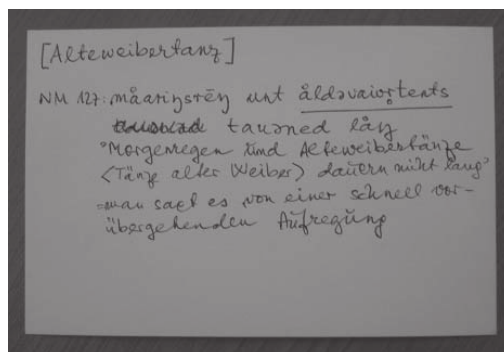 [Alteweibertanz]
NM 127: måariŋsrēŋ unt åldəvaiwərtents
tauəned låŋ
"Morgenregen und Alteweibertänze
<Tänze alter Weiber> dauern nicht lang"
=man sagt es von einer schnell vor-
übergehenden Aufregung